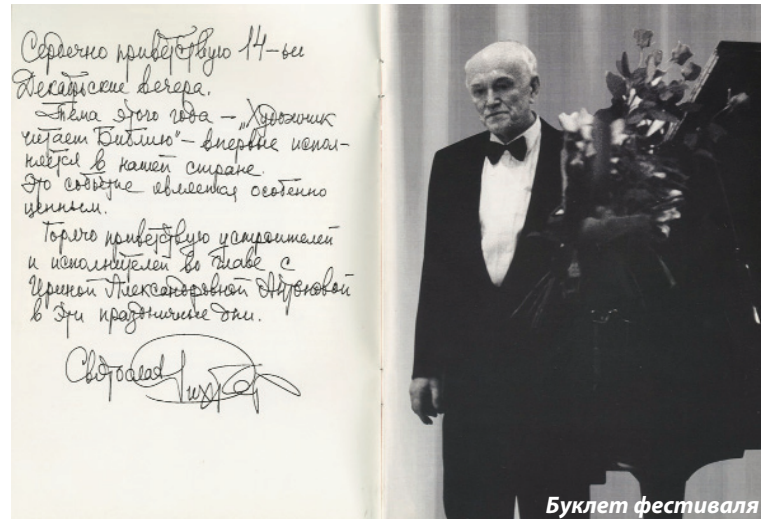 Сердечно приветствую 14-ые
Декабрьские вечера.
Тема этого года – „Художник
читает Библию“ – впервые испол-
няется в нашей стране.
Это событие является особенно
ценным.
Горячо приветствую устроителей
и исполнителей во главе с
Ириной Александровной Антоновой
в эти праздничные дни.
Святослав Рихтер
Буклет фестиваля